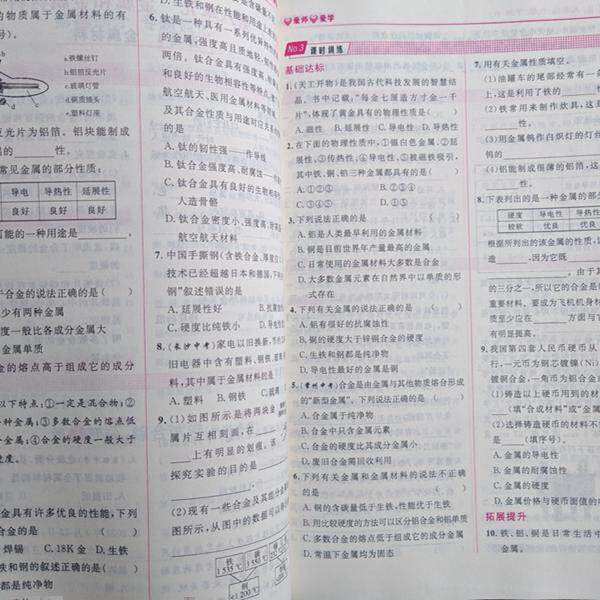 质属于金属材料的有
号)。
a.铁螺丝钉
b.铝箔反光片
c.玻璃灯管
d.钢质插头
e.塑料灯座
反光片为铝箔。铝块能制成
的____性。
常见金属的部分性质:
导电 导热性 延展性
良好 良好 良好
可能的一种用途是____。
合金的说法正确的是( )
少有两种金属
度一般比各成分金属大
金属单质
的熔点高于组成它的成分
以下特点:①一定是混合物;②
一种金属;③多数合金的熔点低
金属;④合金的硬度一般大于
金具有许多优良的性能,下列
合金的是 ( )
焊锡 C.18K金 D.生铁
的叙述正确的是( )
都是纯净物
D.生铁和钢在性能和用途上
6.钛是一种具有系列优异特
的金属,强度高且质地轻,
两倍。钛合金具有强度高、耐
和良好的生物相容性等特点,
航空航天、医用金属材料等领域
及其合金性质与用途对应关系
的是
A.钛的韧性强——作导线
B.钛合金强度高、耐腐蚀
C.钛合金具有良好的生物相容
人造骨骼
D.钛合金密度小、强度高、耐高
航空航天材料
7.中国手撕钢(含铁合金,厚度仅
技术已经超越日本和德国,下列
钢”叙述错误的是
A.延展性好 B.抗腐蚀
C.硬度比纯铁小 D.导电性
8.(长沙中考)家电以旧换新,
旧电器中含有塑料、钢铁、玻璃
料,其中属于金属材料的是
A.塑料 B.钢铁 C.玻璃
9.(1)如图所示是将两块金
属片互相刻画,在____
上有明显的划痕。该
探究实验的目的是____
(2)现有一些合金及其组分金
图所示,从图中的数据可以
铁
1 535 ℃
铜
爱师爱学
No.3 课时训练
基础达标
1.《天工开物》是我国古代科技发展的智慧结
晶。书中记载:“每金七厘造方寸金一千
片”,体现了黄金具有的物理性质是( )
A.磁性 B.延展性 C.导电性 D.导热性
2.在下面的物理性质中,①银白色金属、②延
展性、③传热性、④导电性、⑤被磁铁吸引,
其中铁、铜、铝三种金属都具有的是( )
3.下列说法正确的是 ( )
A.铝是人类最早利用的金属
B.铜是目前世界年产量最高的金属
C.日常使用的金属材料大多数是合金
D.大多数金属元素在自然界中以单质的形
式存在
4.下列有关金属的说法正确的是 ( )
A.铝有很好的抗腐蚀性
B.钢的硬度大于锌铜合金的硬度
C.生铁和钢都是纯净物
D.导热性最好的金属是铁
5.(常州中考)合金是由金属与其他物质熔合形成
的“新型金属”。下列说法正确的是( )
A.合金属于纯净物
B.合金中只含金属元素
C.合金的硬度比其成分金属小
D.废旧合金需回收利用
6.下列有关金属和金属材料的说法不正确的
是 ( )
A.钢的含碳量低于生铁,性能优于生铁
B.用比较硬度的方法可以区分铝合金和铝单质
C.多数合金的熔点低于组成它的成分金属
D.常温下金属均为固态
7.用有关金属性质填空。
(1)油罐车的尾部经常有一条
上,这是利用了铁的____
(2)铁常用来制作炊具,这是
____性。
(3)用金属钨作白炽灯的灯丝
钨的____
(4)铝能制成很薄的铝箔,这
____性。
8.下表列出的是一种金属的部分
硬度 导电性 导热性
较软 优良 优良
根据所列出的该金属的性质,
造____,因为它既____
____,由于其
的三分之一,所以它的合金是
重要材料。要成为飞机机身材
质至少应在____方面与
有明显提高。
9.我国第四套人民币硬币从
行,一元币为钢芯镀镍(Ni)
镀铜合金,一角币为铝合金或
(1)铸造以上硬币用到的材料
____(填“合成材料”或“金属
(2)选择铸造硬币的材料不
是____(填序号)。
A.金属的导电性
B.金属的耐腐蚀性
C.金属的硬度
D.金属价格与硬币面值的
拓展提升
10.铁、铝、铜是日常生活中
金属。